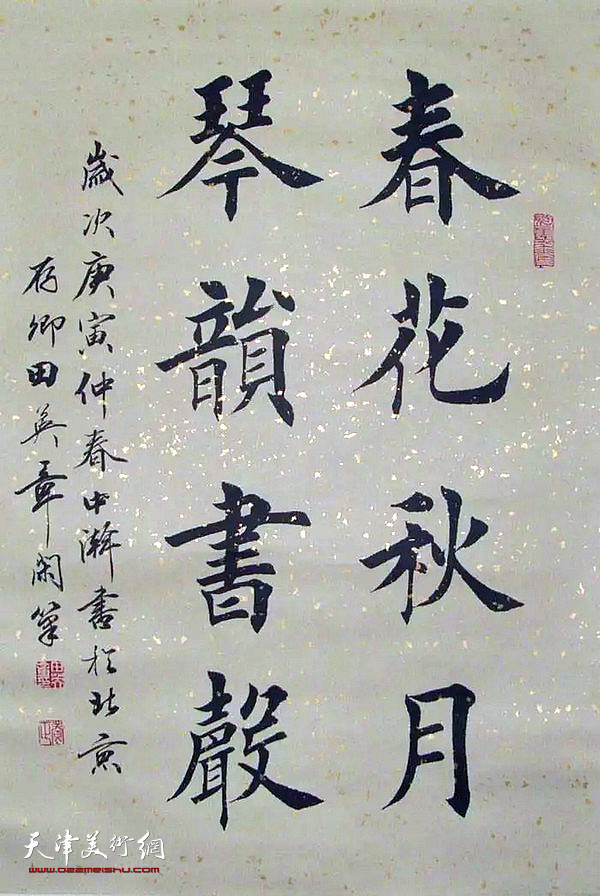 春花秋月
琴韻書聲
歲次庚寅仲春中澣書於北京
存卿田英章閑筆
天津美術網
www.026meishu.com